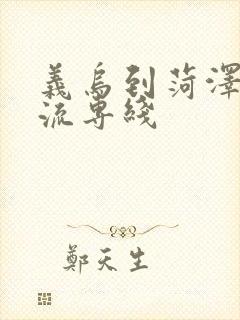 義烏到菏澤
流專綫
鄭天生